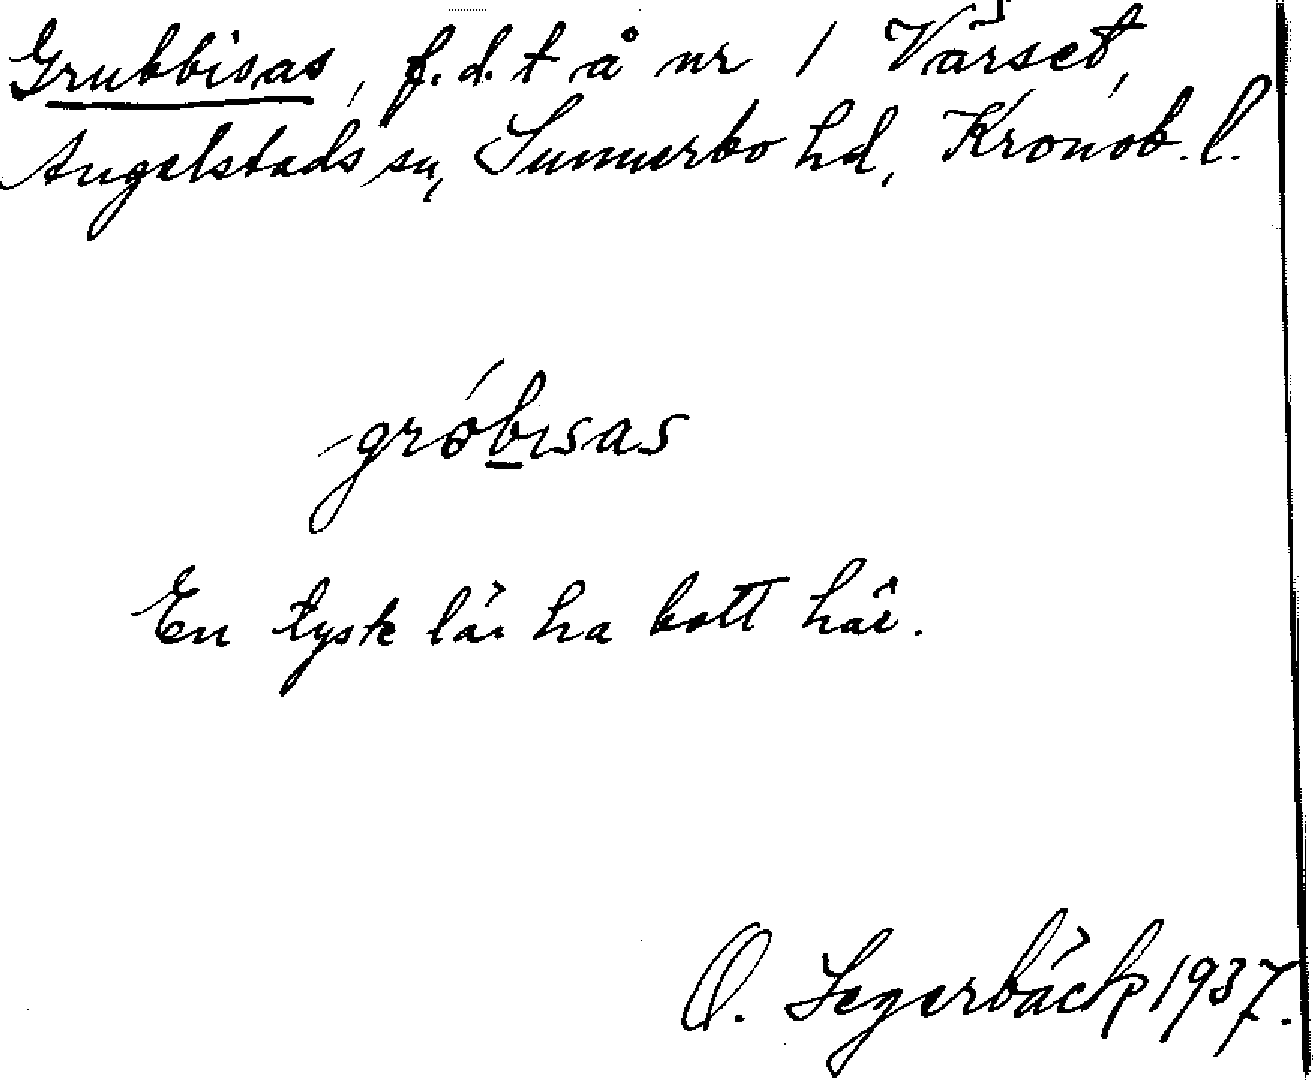 Grubbisas, f.d.t å nr 1 Värset,
Angelstads sn, Sunnerbo hd, Kronob. l.
gròbisas
En tysk lär ha bott här.
O. Segerbäck 1937.